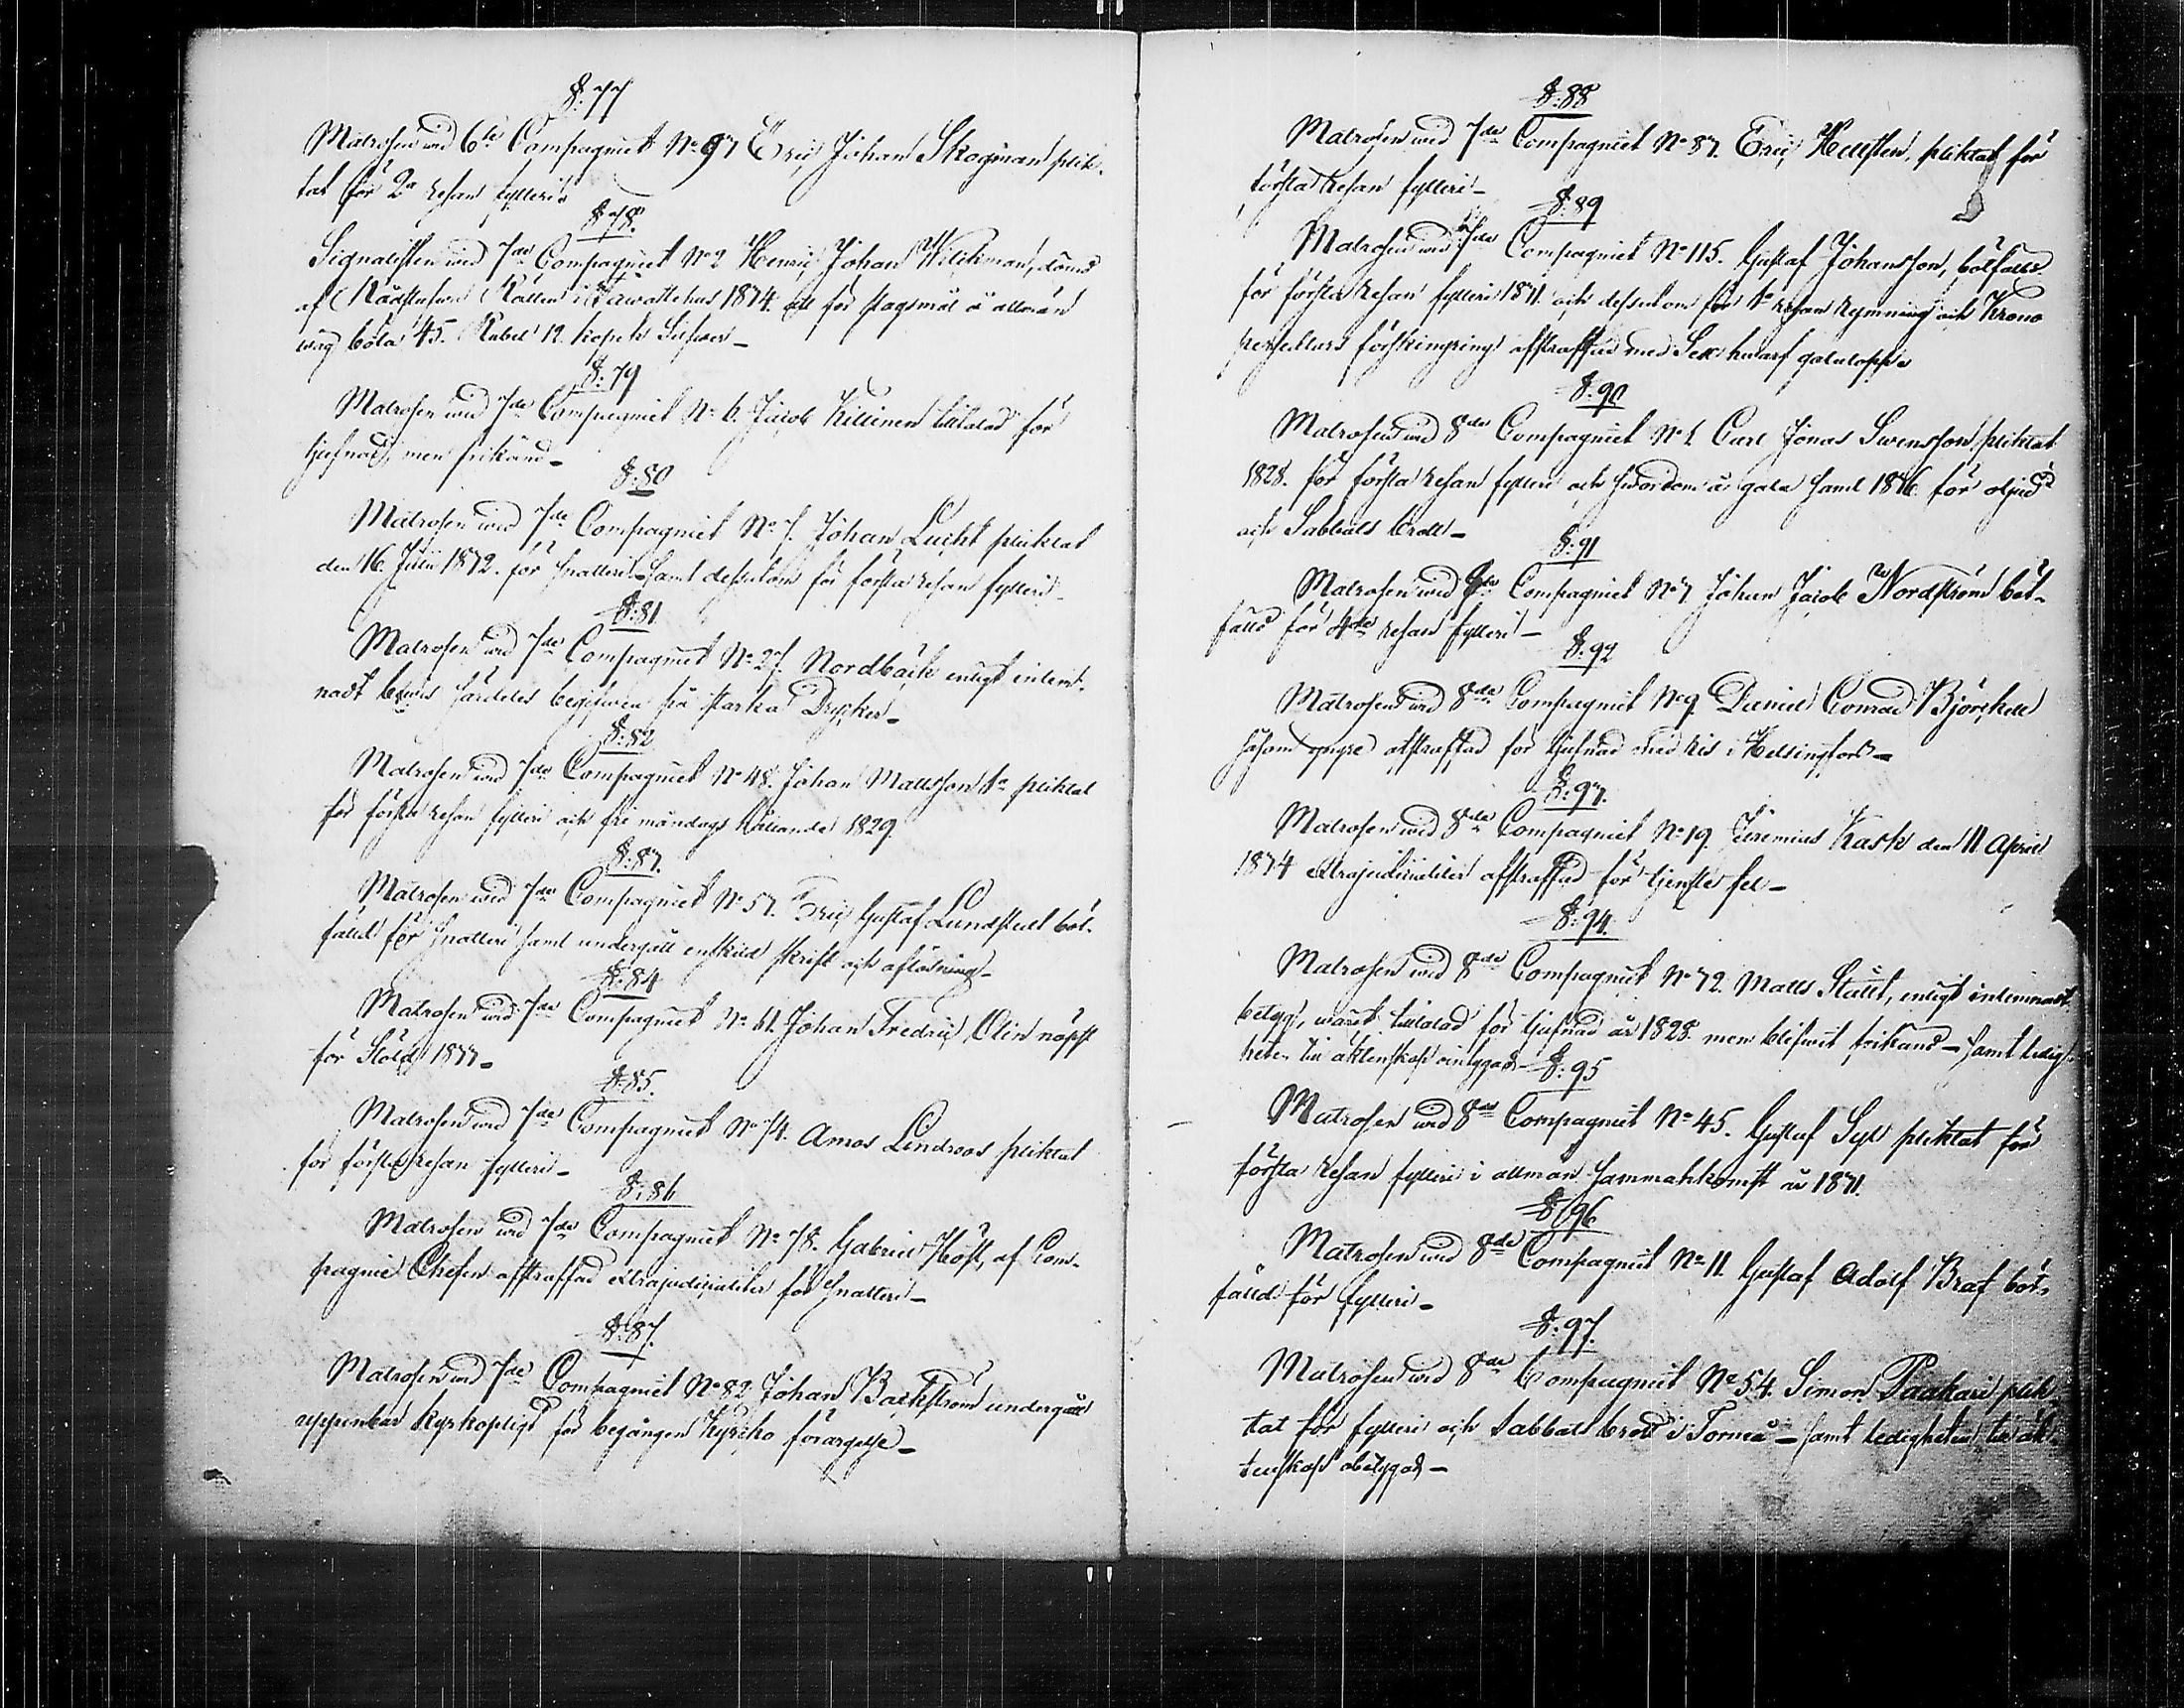 §: 77
Matrosen wid 6te Compagniet No 97 Eric Johan Skogman plik-
tat för 2a resan fylleri
§ 78.
Signalisten wid 7de Compagniet No 2 Henric Johan Wilckman, dömd
af Rådstufwu Rätten i Tawastehus 1834 att för slagsmål å allmän
wäg böta 45. Rubel 12. kopek Silfwer –
§: 79
Matrosen wid 7de Compagniet No 6. Jacob Kiliinen tilltalad för
tjufnad, men frikänd –
§: 80
Matrosen wid 7de Compagniet No 7. Johan Lucht pliktat
den 16. Julii 1832. för snatteri samt dessutom för första resan fylleri –
§: 81
Matrosen wid 7de Compagniet No 27. Nordbäck enligt inlem-
nadt bewis särdeles begifwen på starka Drycker –
§: 82
Matrosen wid 7de Compagniet No 48. Johan Mattsson 1e pliktat
för första resan fylleri och fri måndags hållande 1829
§: 83.
Matrosen wid 7de Compagniet No 53. Eric Gustaf Lundstedt böt-
fälld för snatteri samt undergått enskild skrift och aflösning –
§: 84
Matrosen wid 7de Compagniet No 61. Johan Fredric Olin näpst
för Stöld 1833 –
§: 85.
Matrosen wid 7de Compagniet No 74. Amos Lindroos pliktat
för första resan fylleri –
§: 86
Matrosen wid 7de Compagniet No 78. Gabriel Höst, af Com-
pagnie Chefen afstraffad extrajudicialiter för snatteri –
§: 87.
Matrosen wid 7de Compagniet No 82 Johan Backström undergått
uppenbar Kyrkopligt för begången Kyrcko förargelse –
§: 88
Matrosen wid 7de Compagniet No 87. Eric Hellsten, pliktat för
första resan fylleri –
§: 89
Matrosen wid 7de Compagniet No 115. Gustaf Johansson, bötfälld
för första resan fylleri 1831. och dessutom för 1a resan rymning och Krono
persedlars förskingring afstraffad med Sex hwarf gatulopp.
§: 90
Matrosen wid 8de Compagniet No 1. Carl Jonas Swensson, pliktat
1828. för första resan fylleri och swordom å gata samt 1836. för oljud
och Sabbats brott –
§: 91
Matrosen wid 8de Compagniet No 7 Johan Jacob Nordström böt-
fälld för 4de resan fylleri –
§: 92
Matrosen wid 8de Compagniet No 9 Daniel Conrad Björckell
såsom yngre afstraffad för tjufnad med ris i Helsingfors –
§: 93.
Matrosen wid 8de Compagniet No 19. Jeremias Kask den 11 April
1834 extrajudicialiter afstraffad för tjenste fel –
§: 94.
Matrosen wid 8de Compagniet No 32. Matts Stållt, enligt inlemnadt
betyg, warit tilltalad för tjufnad år 1828. men blifwit frikänd – samt ledig-
heten till äktenskap obetygad –
§: 95
Matrosen wid 8de Compagniet No 45. Gustaf Syll pliktat för
första resan fylleri i allmän Sammankomst år 1831.
§: 96
Matrosen wid 8de Compagniet No 11. Gustaf Adolf Braf böt-
fälld för fylleri –
§: 97.
Matrosen wid 8de Compagniet No 54. Simon Paakari plik-
tat för fylleri och sabbats brott i Torneå – samt ledigheten till äk-
tenskap obetygad –